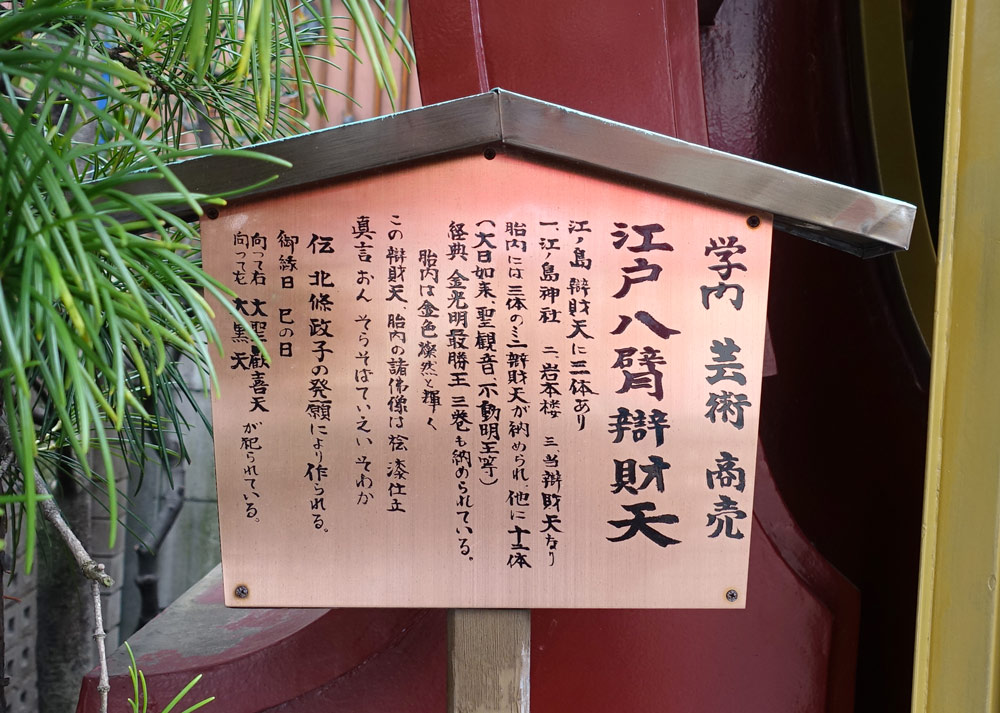 学内 芸術 商売
江戸八臂辯財天
江ノ島 辯財天に三体あり
一、江ノ島神社 二、岩本楼 三、当辯財天なり
胎内には三体のミニ辯財天が納められ、他に十三体
(大日如来、聖観音、不動明王等)
経典 金光明最勝王 三巻も納められている。
胎内は金色燦然と輝く
この辯財天 胎内の諸佛像は桧 漆仕立
真言 おん そらそばていえい そわか
伝 北條政子の発願により作られる。
御縁日 巳の日
向って右 大聖歓喜天
向って左 大黒天 が祀られている。